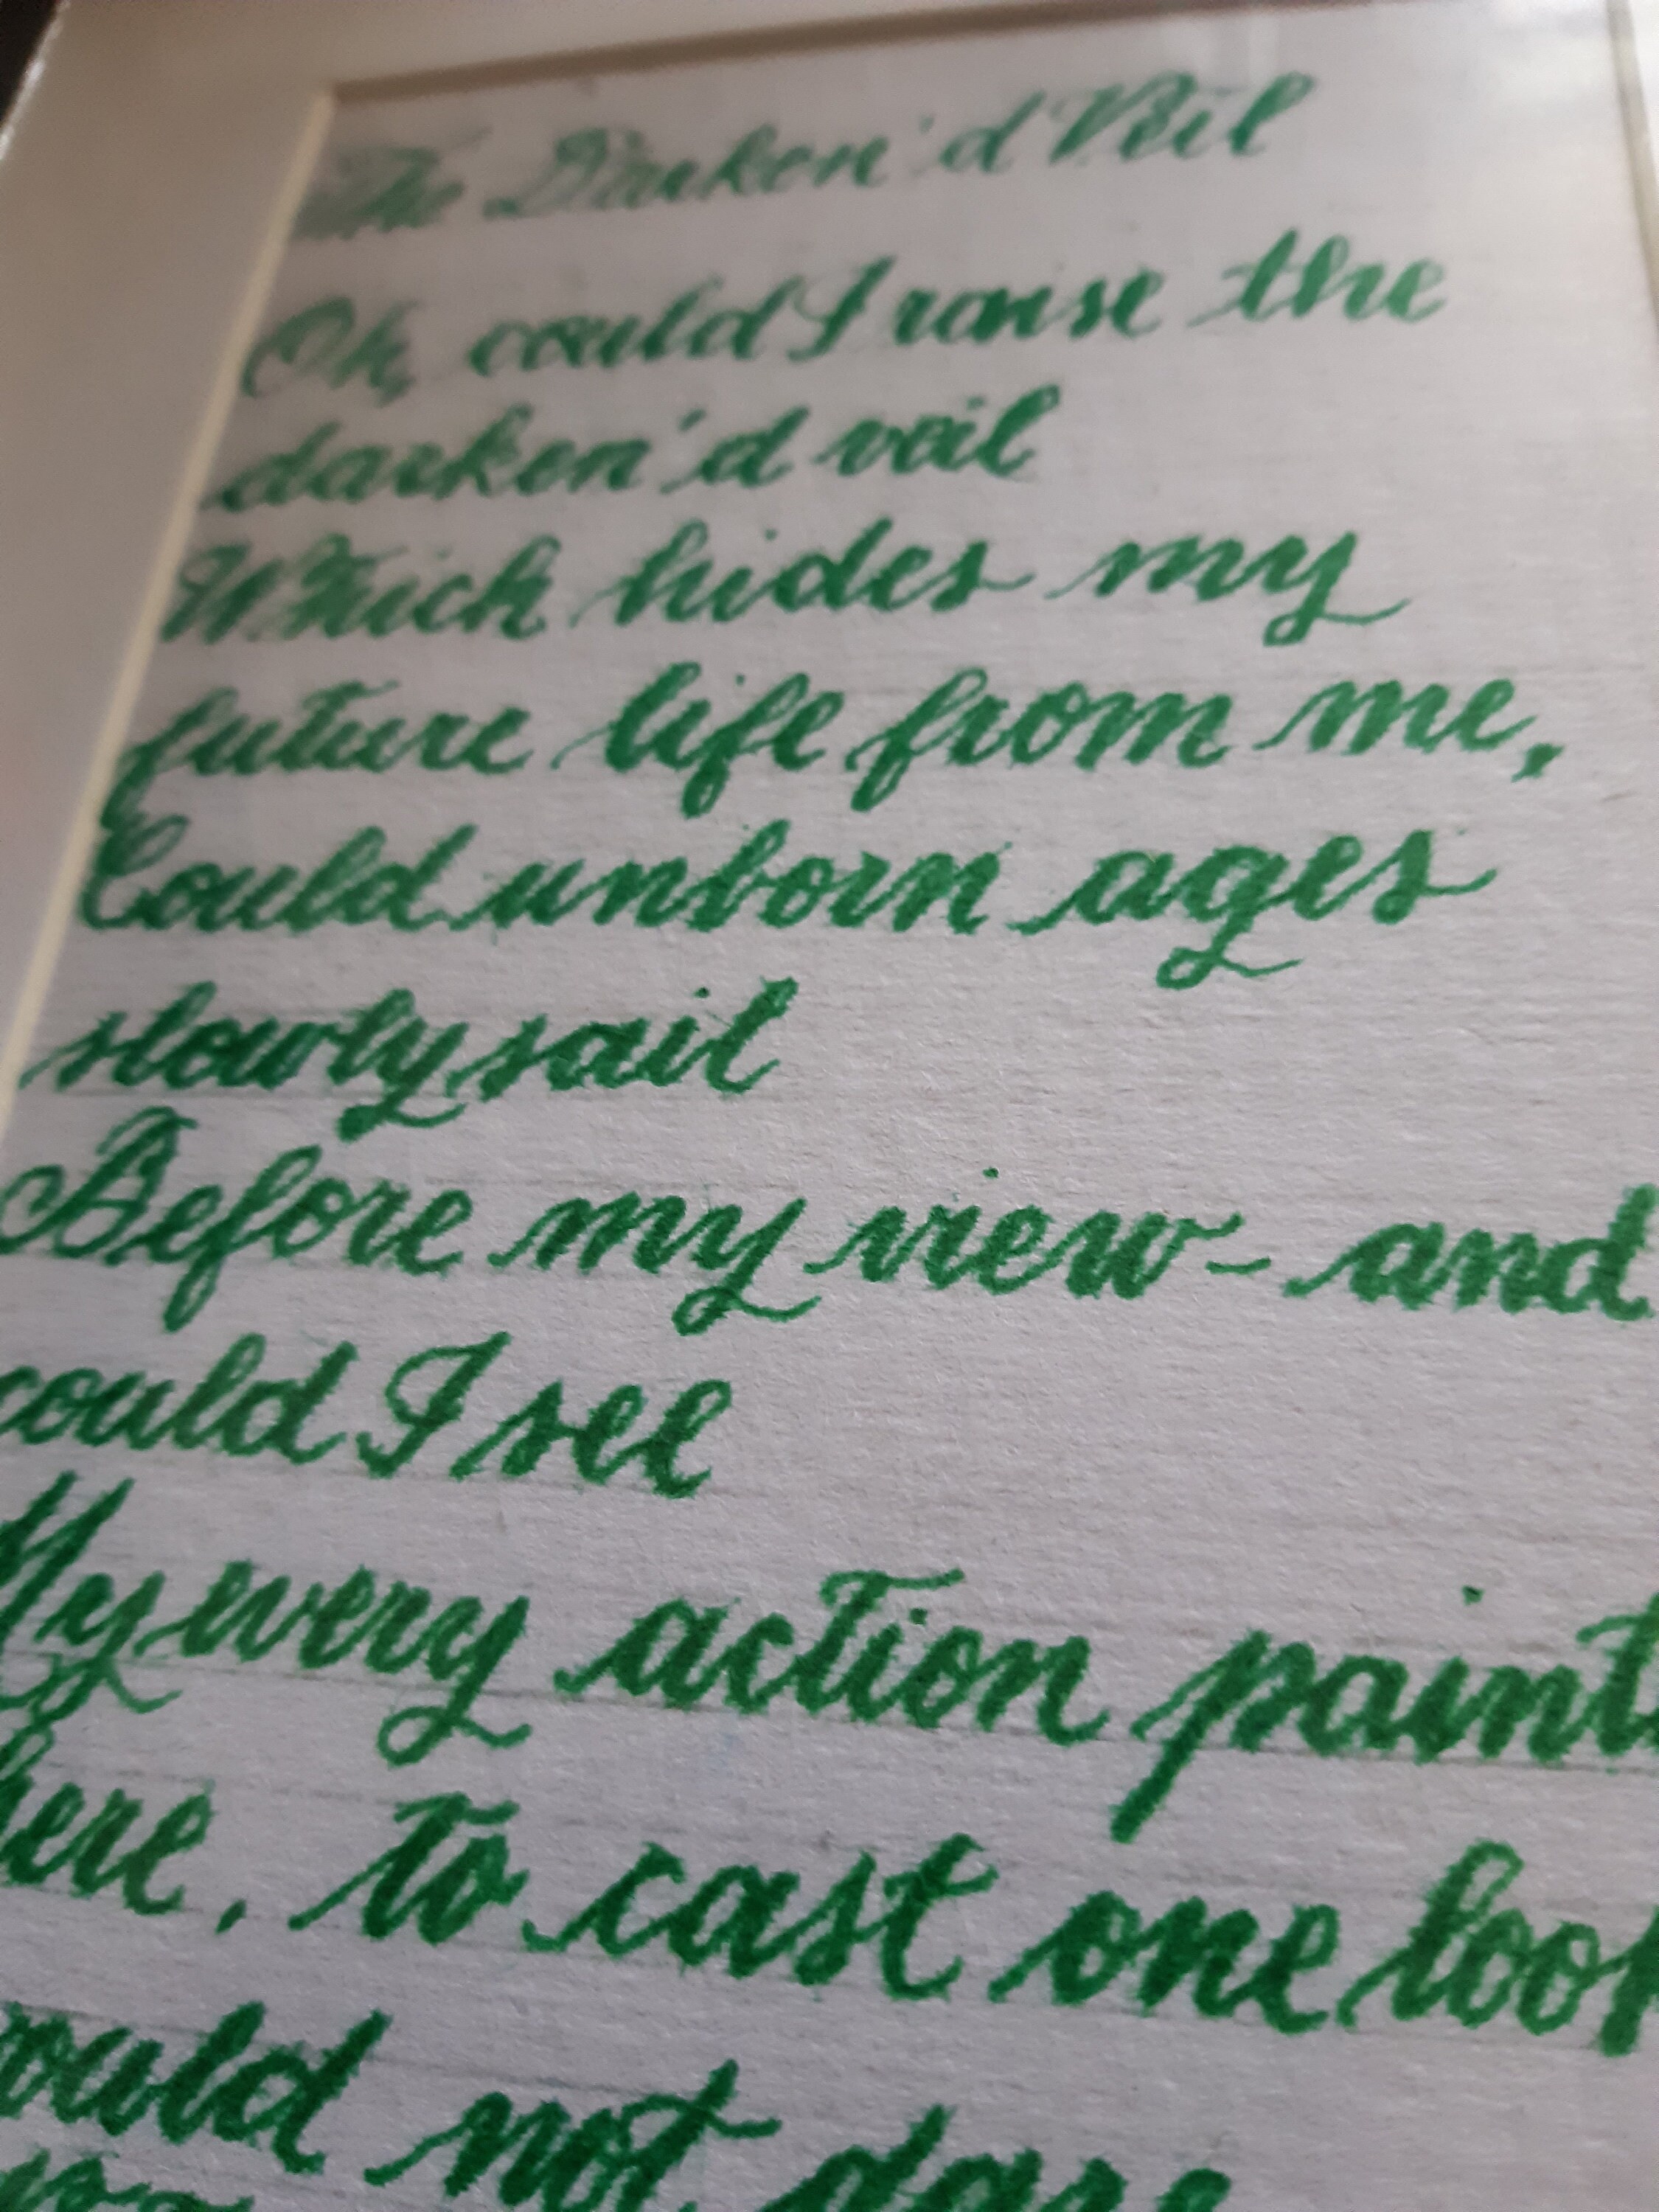 The Darken'd Veil
Oh, could I raise the
darken'd veil
Which hides my
future life from me,
Could unborn ages
slowly sail
Before my view- and
could I see
My every action paint
here, to cast one look
ould not dare